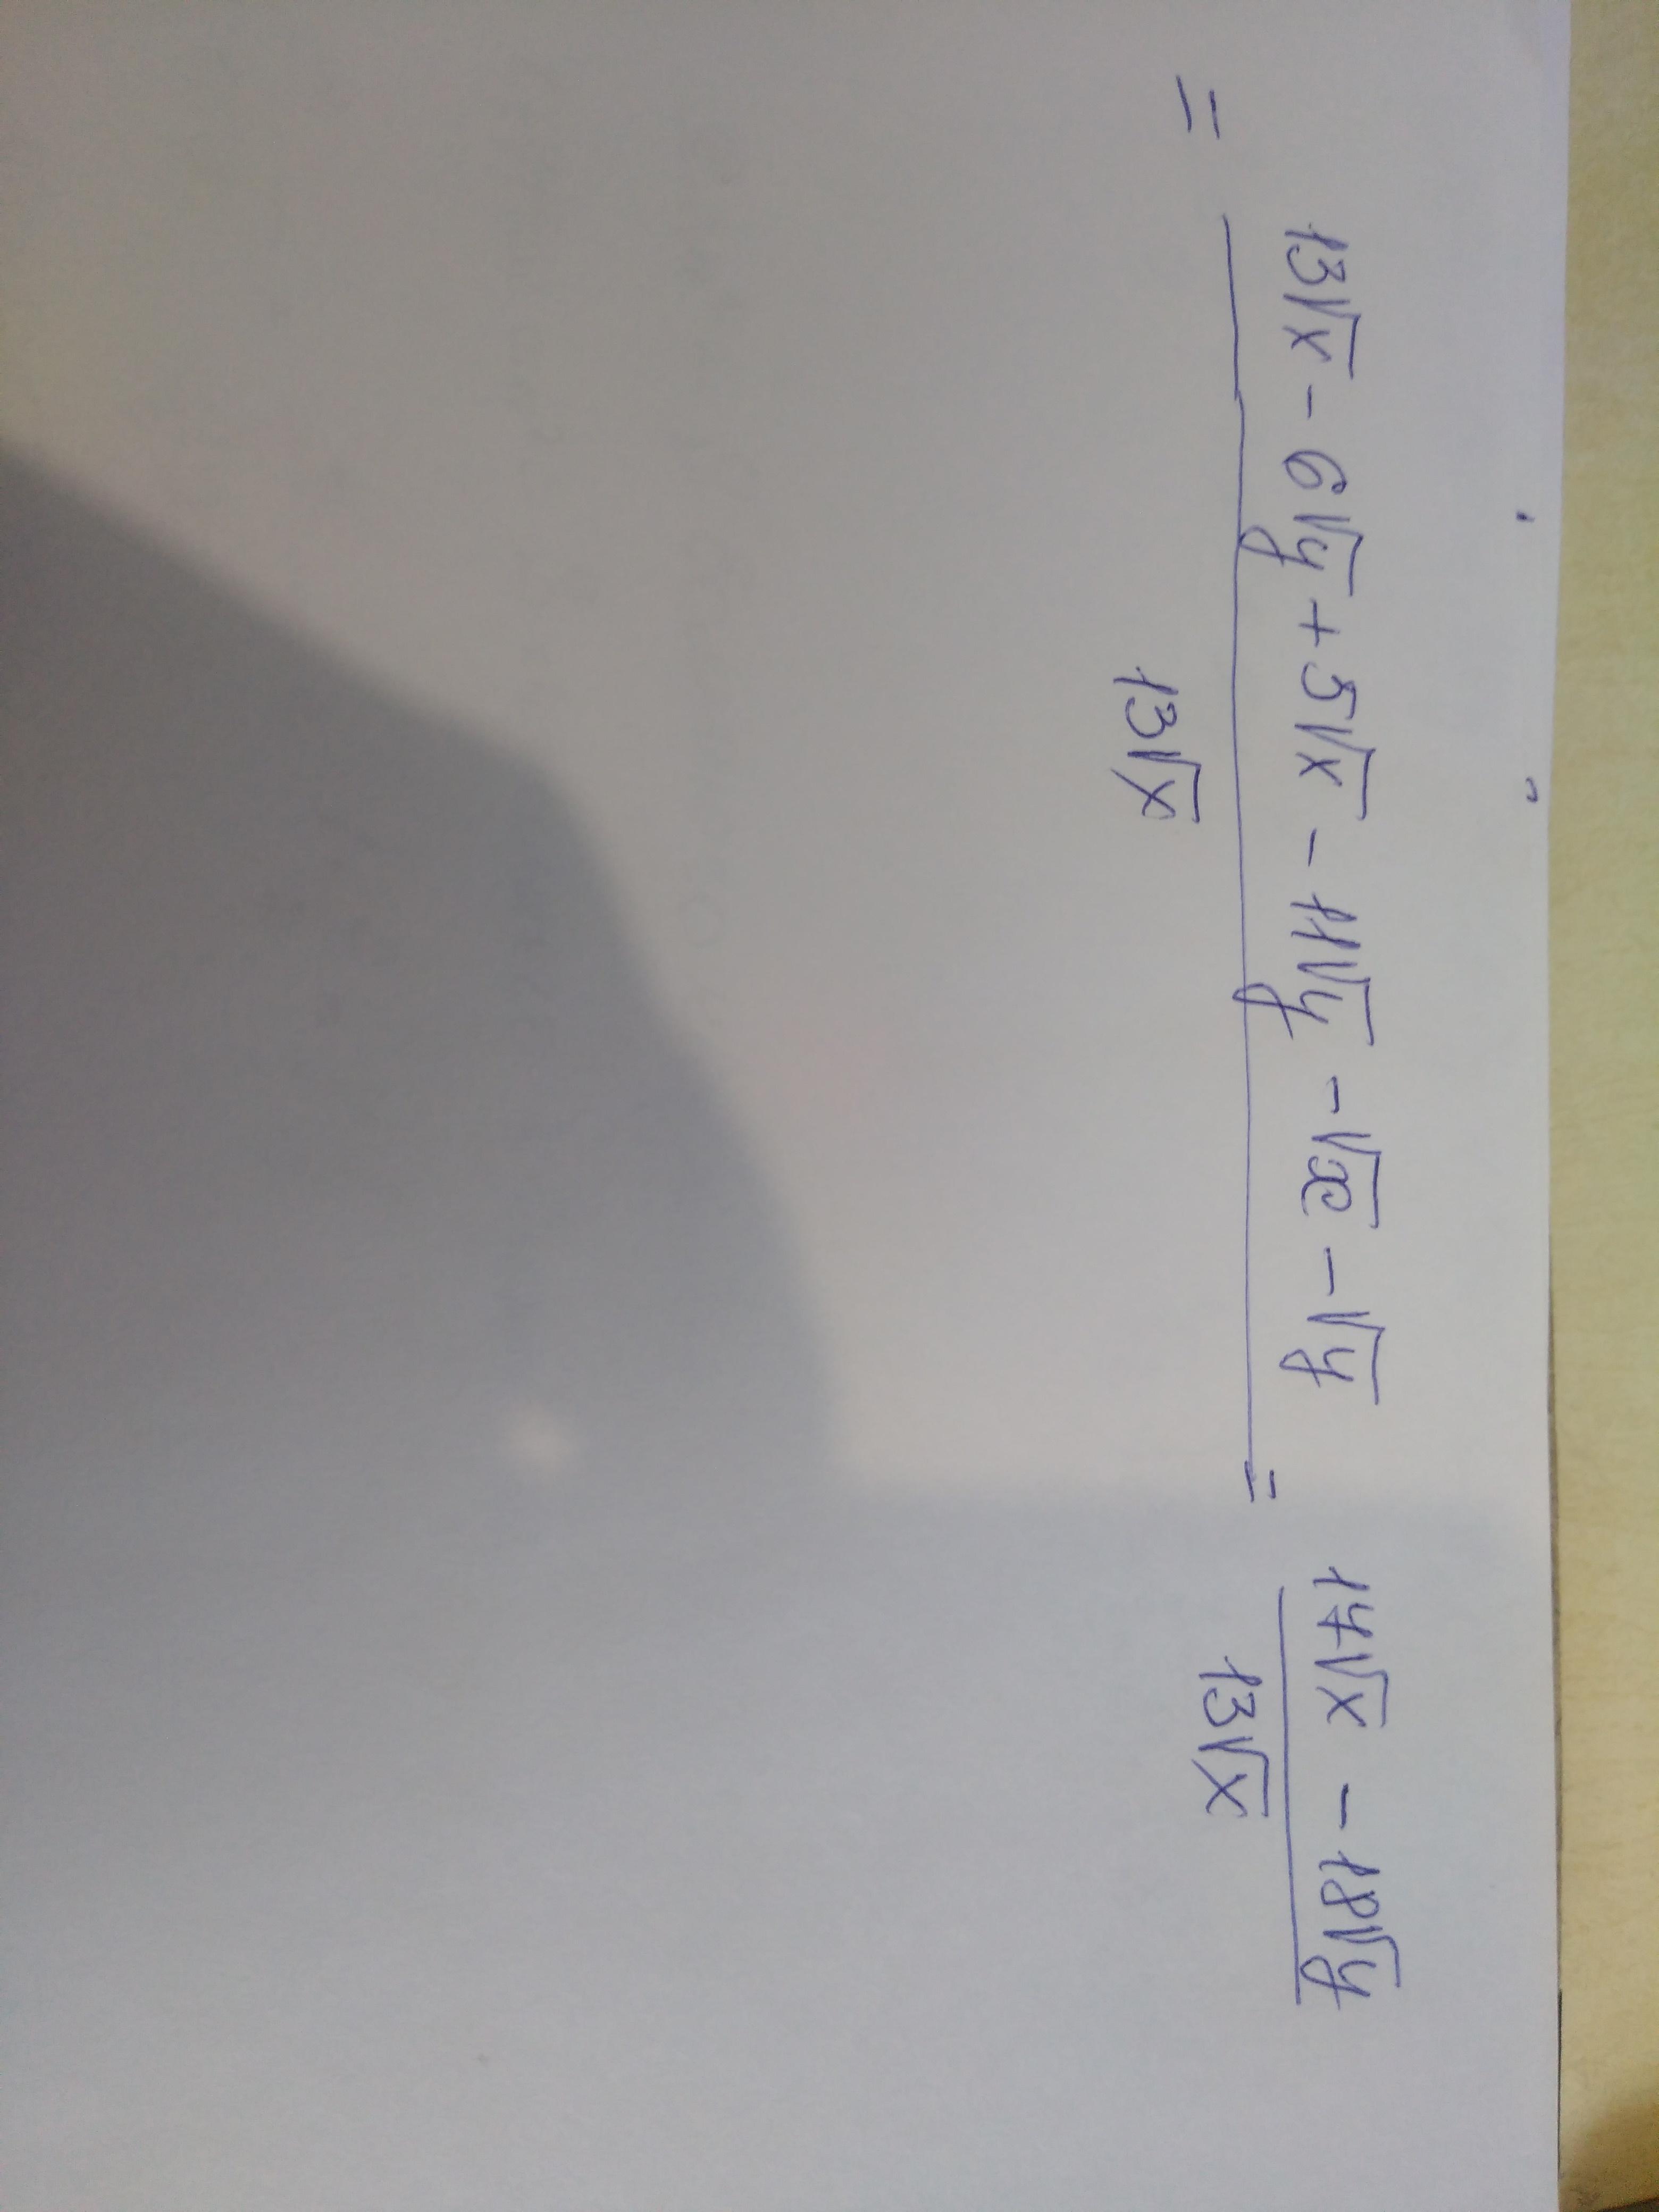 = (13√x - 6√y + 5√x - 11√y - √x - √y) / (13√x) = (17√x - 18√y) / (13√x)